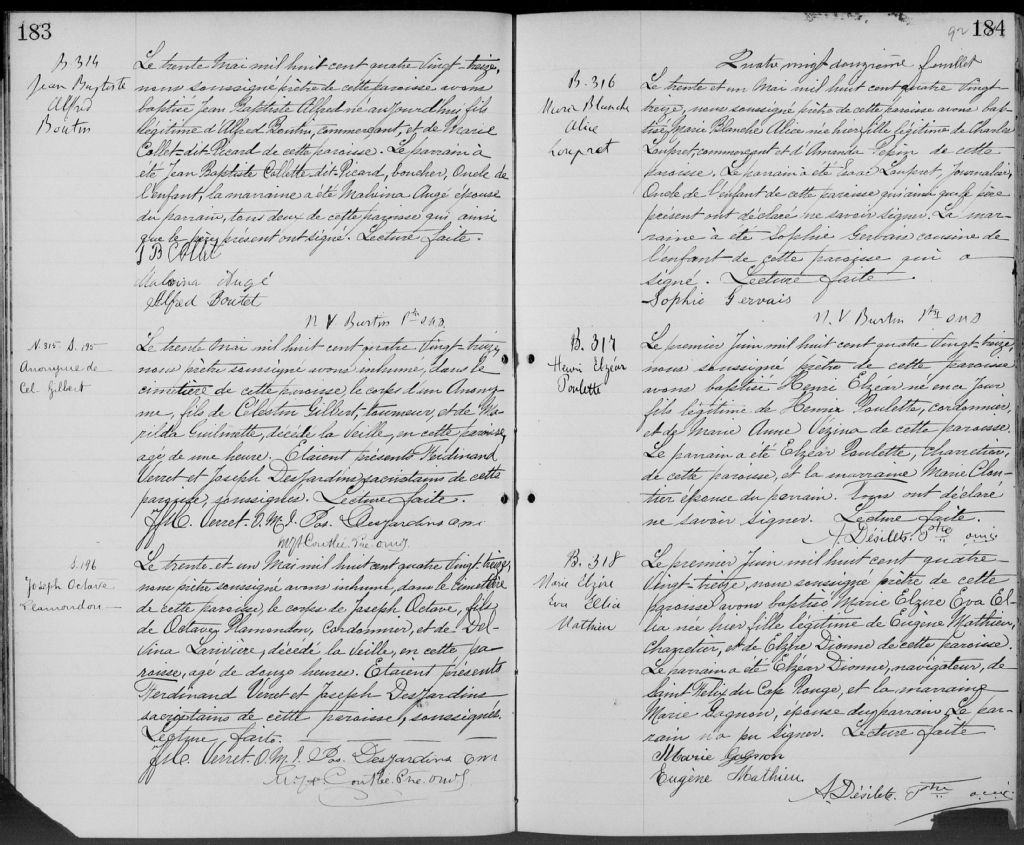 183
B. 314
Jean Baptiste
Alfred
Boutin
Le trente Mai mil huit cent quatre Vingt-treize,
nous soussigné prêtre de cette paroisse avons
baptisé Jean Baptiste Alfred né aujourd'hui fils
légitime d'Alfred Boutin, commerçant, et de Marie
Collet-dit-Picard de cette paroisse. Le parrain a
été Jean Baptiste Collette dit-Picard, boucher, Oncle de
l'enfant, la marraine a été Malvina Augé épouse
du parrain, tous deux de cette paroisse qui ainsi
que le père présent ont signé. Lecture faite.
J B Collet
Malvina Augé
Alfred Boutet
N V Burtin Ptre O.M.I.
N. 315 S. 195
Anonyme de
Cel. Gilbert
Le trente Mai mil huit cent quatre Vingt-treize,
nous prêtre soussigné avons inhumé, dans le
cimetière de cette paroisse, le corps d'un Anony-
me, fils de Célestin Gilbert, tourneur, et de Ma-
rilda Guilmette, décédé la Veille, en cette paroisse
agé de une heure. Etaient présents Ferdinand
Verret et Joseph DesJardins sacristains de cette
paroisse, soussignés. Lecture faite.
Verret. O.M.I. Jos. DesJardins
S. 196
Joseph Octave
Plamondon
Le trente et un Mai mil huit cent quatre Vingt treize,
nous prêtre soussigné avons inhumé, dans le Cimetière
de cette paroisse, le corps de Joseph Octave, fils
de Octave Plamondon, Cordonnier, et de Del-
vina Lariviere, décédé la Veille, en cette pa
roisse, agé de douze heures. Etaient présents
Ferdinand Verret et Joseph DesJardins
sacristains de cette paroisse, soussignés.
Lecture faite.
Verret. O.M.I. Jos. Desjardins
184
92
Quatre vingt douzième feuillet
B. 316
Marie Blanche
Alice
Loupret
Le trente et un Mai mil huit cent quatre Vingt-
treize, nous soussigné prêtre de cette paroisse avons bap-
tisé, Marie Blanche Alice née hier fille légitime de Charles
Loupret, commerçant et d'Amanda Pépin de cette
paroisse. Le parrain a été Isaac Loupret, Journalier,
Oncle de l'enfant de cette paroisse qui ainsi que le père
présent ont déclaré ne savoir signer. La mar-
raine a été Sophie Gervais cousine de
l'enfant de cette paroisse qui a
signé. Lecture faite
Sophie Gervais
N. V Burtin Ptre O.M.I.
B. 317
Henri Elzéar
Paulette
Le premier Juin mil huit cent quatre Vingt-treize
nous soussigné prêtre de cette paroisse
avons baptisé Henri Elzéar né en ce Jour
fils légitime de Henri Paulette, cordonnier,
et de Marie Anne Vezina de cette paroisse.
Le parrain a été Elzéar Paulette, charretier,
de cette paroisse, et la marraine Marie Clou-
tier épouse du parrain. Tous ont déclaré
ne savoir signer. Lecture faite.
A. Désilets. Ptre o.m.i.
B. 318
Marie Elzire
Eva Ellia
Mathieu
Le premier Juin mil huit cent quatre-
Vingt-treize, nous soussigné prêtre de cette
paroisse avons baptisé Marie Elzire Eva El-
lia née hier fille légitime de Eugène Mathieu,
Charretier, et de Elzire Dionne de cette paroisse.
Le parrain a été Elzéar Dionne, navigateur, de
Saint Felix du Cap Rouge, et la marraine
Marie Gagnon, épouse du parrain. Le par-
rain n'a pu signer. Lecture faite
Marie Gagnon
Eugène Mathieu
A. Désilets. Ptre o.m.i.